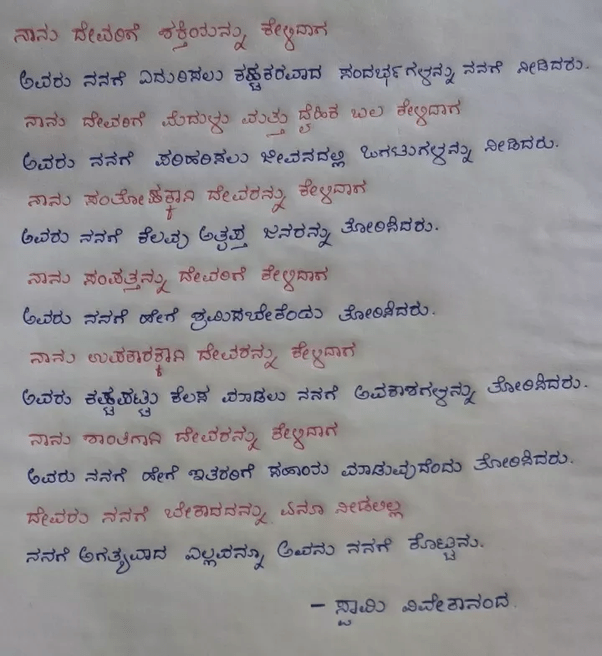 ನಾನು ದೇವರಿಗೆ ಶಕ್ತಿಯನ್ನು ಕೇಳಿದಾಗ
ಅವರು ನನಗೆ ಎದುರಿಸಲು ಕಷ್ಟಕರವಾದ ಸಂದರ್ಭಗಳನ್ನು ನನಗೆ ನೀಡಿದರು.
ನಾನು ದೇವರಿಗೆ ಮೆದುಳು ಮತ್ತು ದೈಹಿಕ ಬಲ ಕೇಳಿದಾಗ
ಅವರು ನನಗೆ ಪರಿಹರಿಸಲು ಜೀವನದಲ್ಲಿ ಒಗಟುಗಳನ್ನು ನೀಡಿದರು.
ನಾನು ಸಂತೋಷಕ್ಕಾಗಿ ದೇವರನ್ನು ಕೇಳಿದಾಗ
ಅವರು ನನಗೆ ಕೆಲವು ಅತೃಪ್ತ ಜನರನ್ನು ತೋರಿಸಿದರು.
ನಾನು ಸಂಪತ್ತನ್ನು ದೇವರಿಗೆ ಕೇಳಿದಾಗ
ಅವರು ನನಗೆ ಹೇಗೆ ಶ್ರಮಿಸಬೇಕೆಂದು ತೋರಿಸಿದರು.
ನಾನು ಉಪಕಾರಕ್ಕಾಗಿ ದೇವರನ್ನು ಕೇಳಿದಾಗ
ಅವರು ಕಷ್ಟಪಟ್ಟು ಕೆಲಸ ಮಾಡಲು ನನಗೆ ಅವಕಾಶಗಳನ್ನು ತೋರಿಸಿದರು.
ನಾನು ಶಾಂತಿಗಾಗಿ ದೇವರನ್ನು ಕೇಳಿದಾಗ
ಅವರು ನನಗೆ ಹೇಗೆ ಇತರರಿಗೆ ಸಹಾಯ ಮಾಡುವುದೆಂದು ತೋರಿಸಿದರು.
ದೇವರು ನನಗೆ ಬೇಕಾದದನ್ನು ಏನೂ ನೀಡಲಿಲ್ಲ
ನನಗೆ ಅಗತ್ಯವಾದ ಎಲ್ಲವನ್ನೂ ಅವನು ನನಗೆ ಕೊಟ್ಟನು.
– ಸ್ವಾಮಿ ವಿವೇಕಾನಂದ